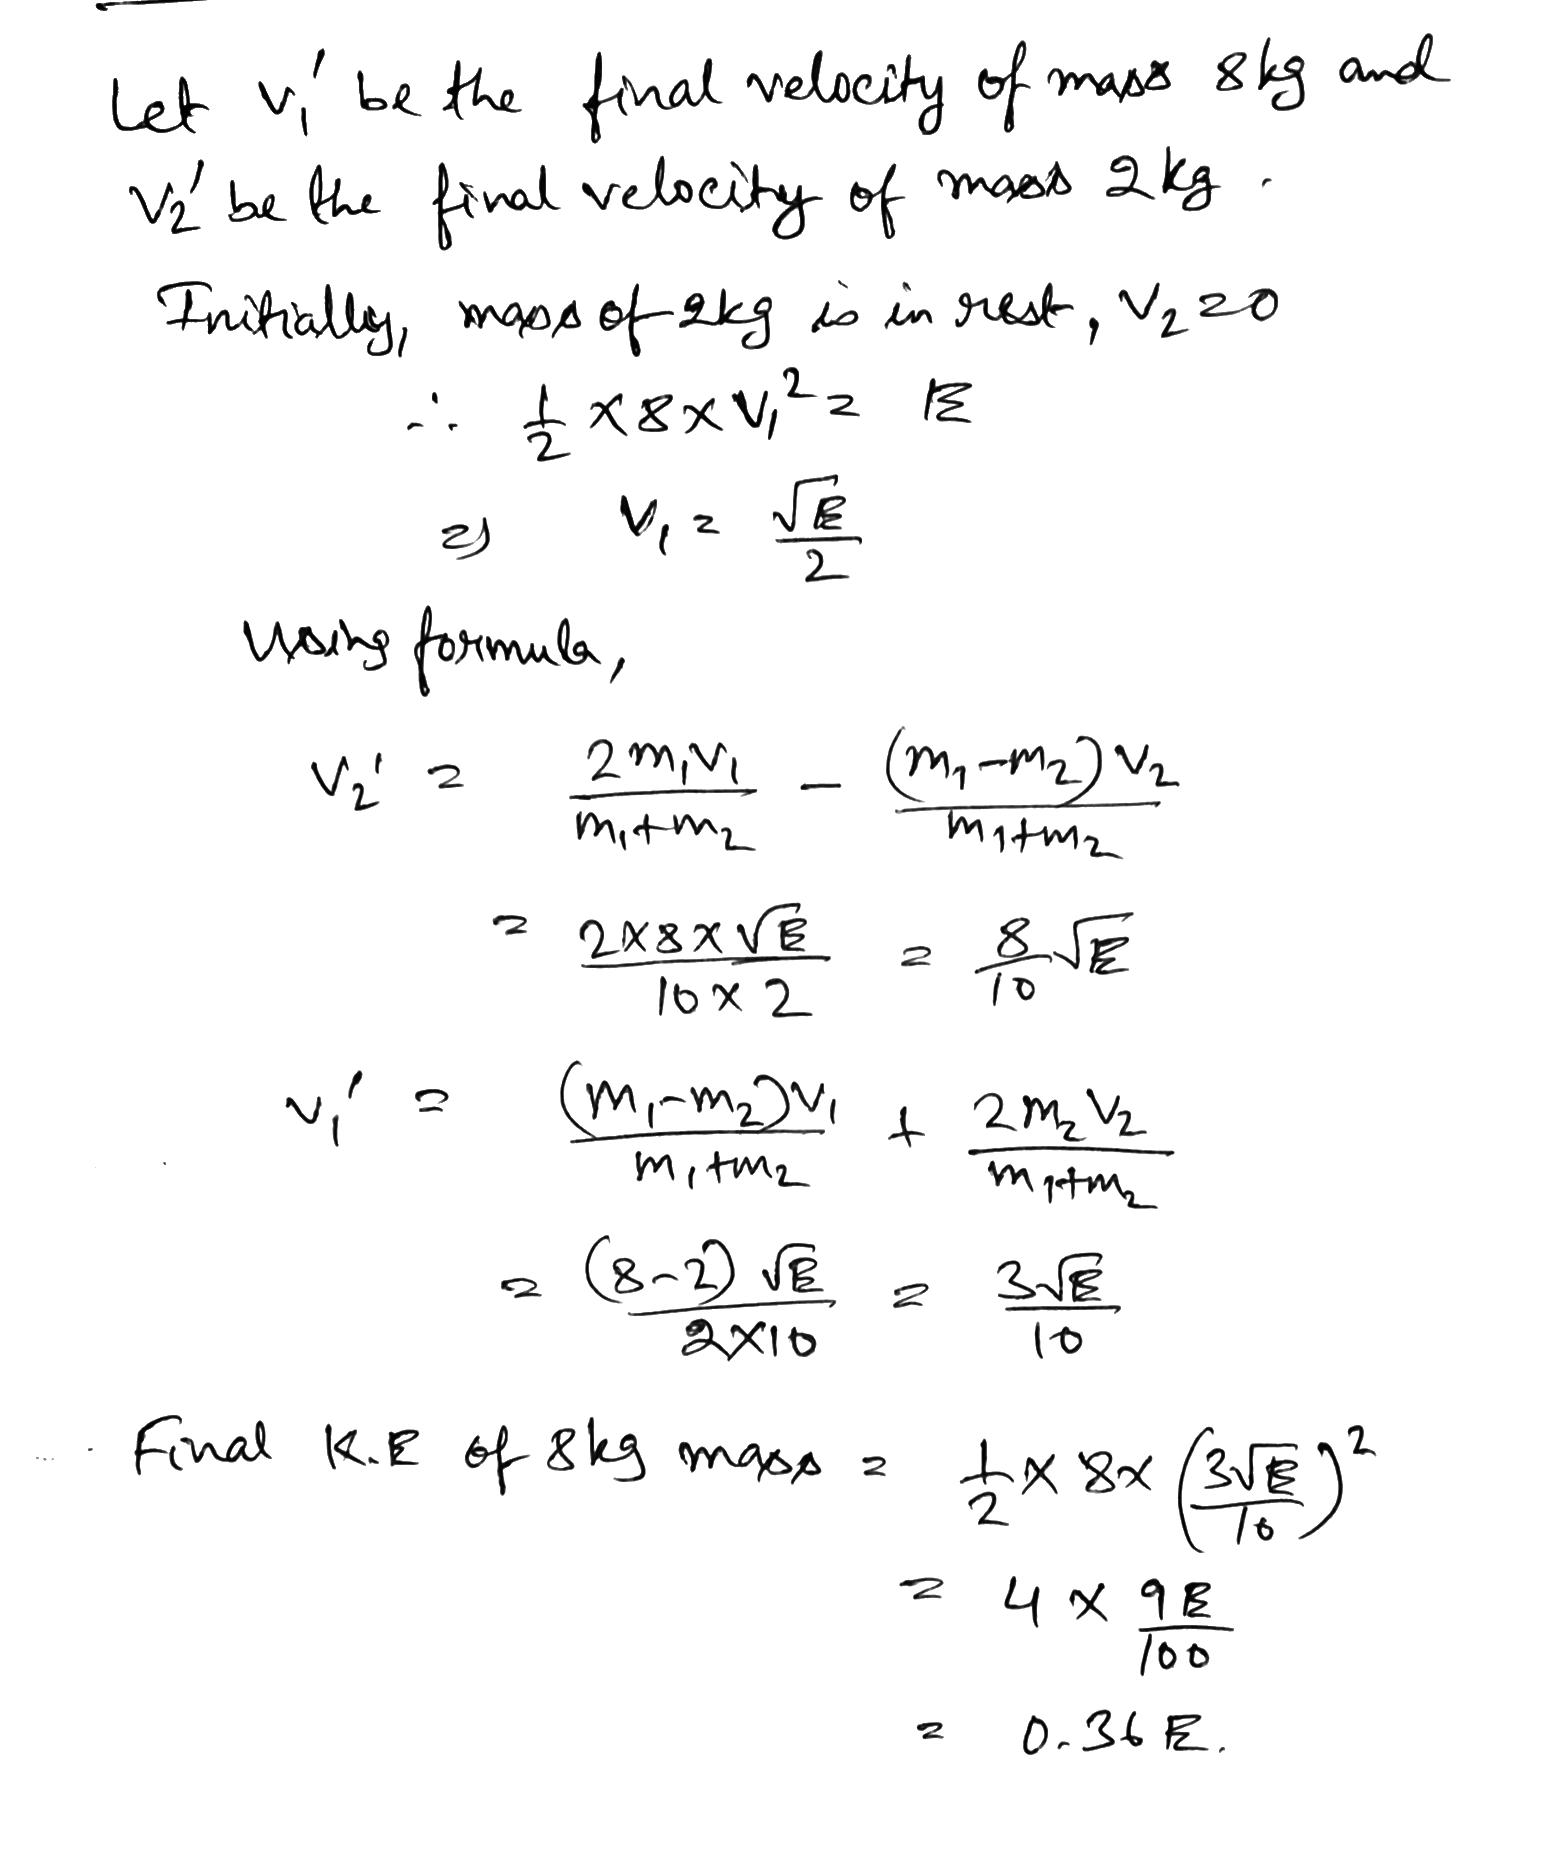 Let v₁' be the final velocity of mass 8kg and
v₂' be the final velocity of mass 2kg.
Initially, mass of 2kg is in rest, v₂ = 0
∴ 1/2 × 8 × v₁² = E
⇒ v₁ = √E/2
Using formula,
v₂' = 2m₁v₁/(m₁+m₂) - (m₁-m₂)v₂/(m₁+m₂)
= (2×8×√E)/(10×2) = 8/10 √E
v₁' = (m₁-m₂)v₁/(m₁+m₂) + 2m₂v₂/(m₁+m₂)
= (8-2)√E/(2×10) = 3√E/10
Final K.E of 8kg mass = 1/2 × 8× (3√E/10)²
= 4 × 9E/100
= 0.36E.